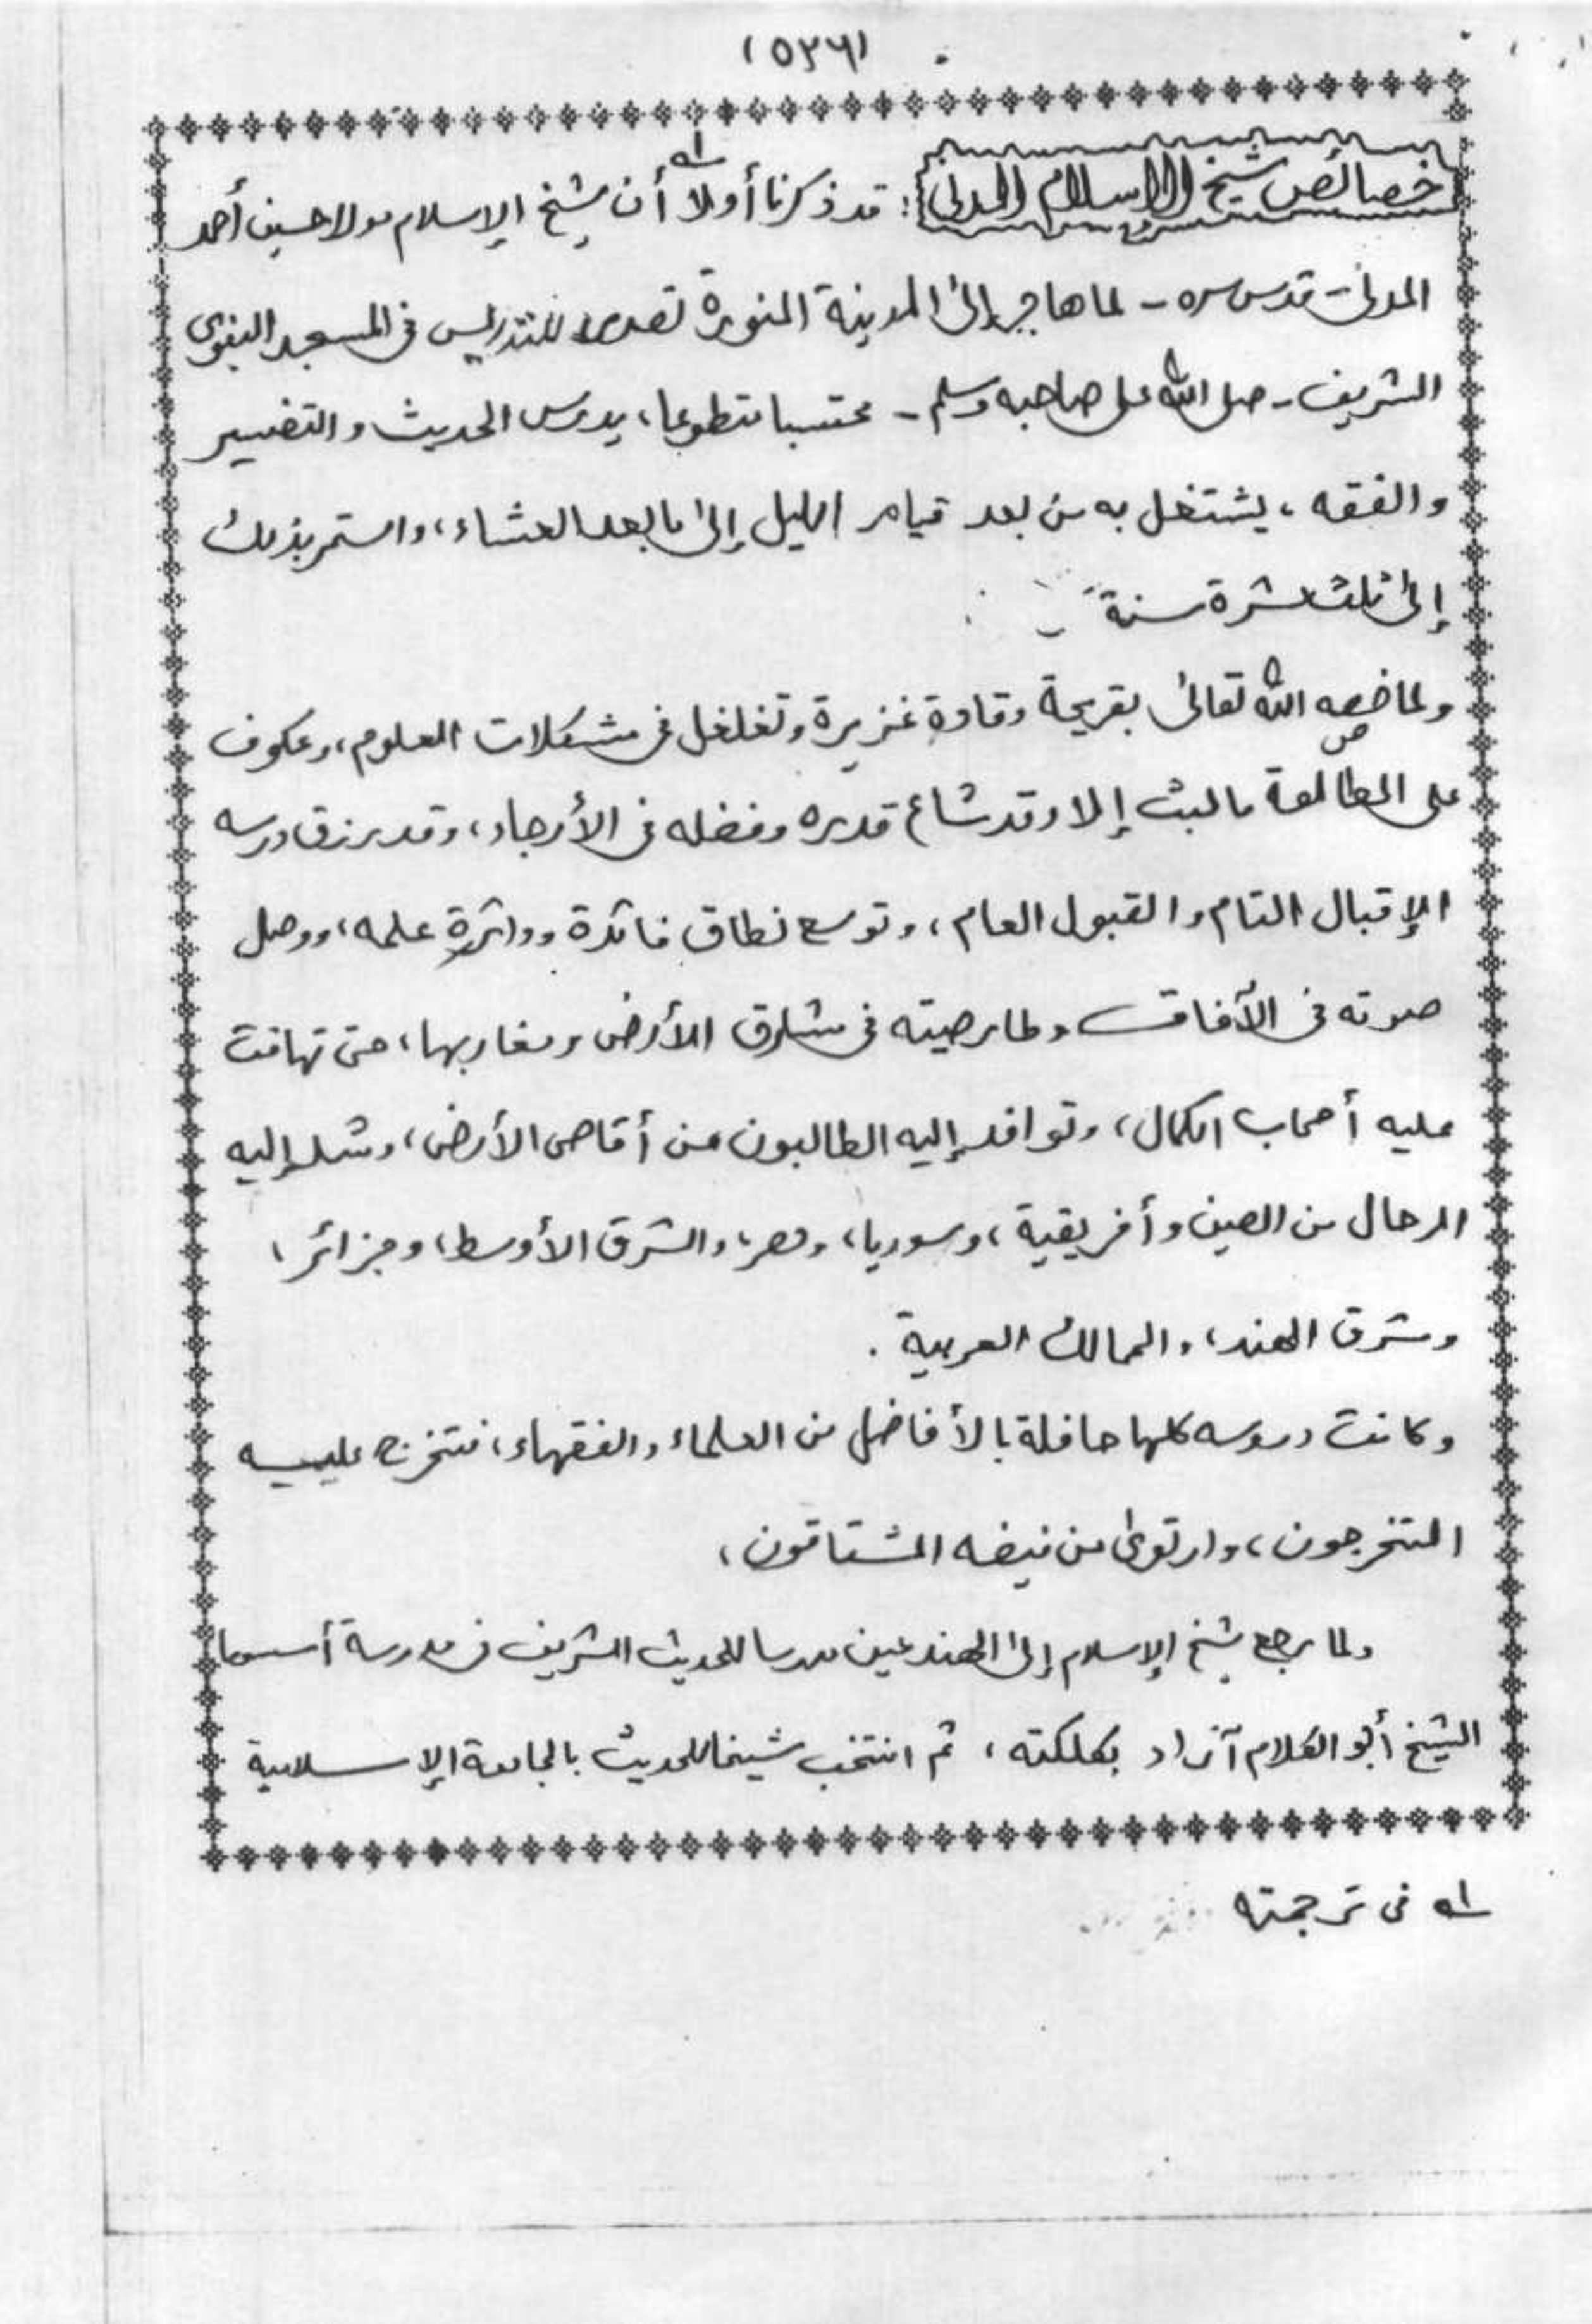 (٥٢٦)
خصائص شيخ الإسلام المدني: قد ذكرنا أولا ؂١ أن شيخ الإسلام مولا حسين أحمد
المدني - قدس سره - لما هاجر إلى المدينة المنورة تصدى للتدريس في المسجد النبوي
الشريف - صلى الله على صاحبه وسلم - محتسبا متطوعا، يدرس الحديث والتفسير
والفقه، يشتغل به من بعد قيام الليل إلى ما بعد العشاء، واستمر بذلك
إلى ثلث عشرة سنة
ولما خصه الله تعالى بقريحة وقادة غزيرة وتغلغل في مشكلات العلوم، وعكوف
على المطالعة ما لبث إلا وقد شاع قدره وفضله في الأرجاء، وقد رزق درسه
الإقبال التام والقبول العام، وتوسع نطاق فائدة ودائرة علمه، ووصل
صوته في الآفاق وطار صيته في مشارق الأرض ومغاربها، حتى تهافت
عليه أصحاب الكمال، وتوافد إليه الطالبون من أقاصى الأرض، وشد إليه
الرحال من الصين وأفريقية، وسوريا، ومصر، والشرق الأوسط، وجزائر،
وشرق الهند، والممالك العربية.
وكانت دروسه كلها حافلة بالأفاضل من العلماء والفقهاء، فتخرج عليه
المتخرجون، وارتوى من فيضه المشتاقون،
ولما رجع شيخ الإسلام إلى الهند عين مدرسا للحديث الشريف في مدرسة أسسها
الشيخ أبو الكلام آزاد بكلكته، ثم انتخب شيخا للحديث بالجامعة الإسلامية
؂١ في ترجمته